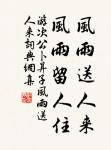 風雨送人来
風雨留人住
游次公卜算子風雨送
人来詞典網集